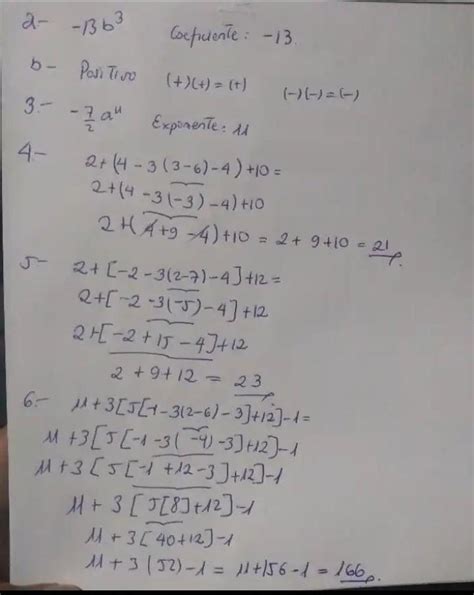 2.- -13b³ Coeficiente: -13.
b- Positivo (+)(+)=(+) (-)(-)=(-)
3.- -7/2 a¹¹ Exponente: 11
4.- 2+(4-3(3-6)-4)+10=
2+(4-3(-3)-4)+10
2+(4+9-4)+10 = 2+9+10 = 21
5- 2+[-2-3(2-7)-4]+12=
2+[-2-3(-5)-4]+12
2+[-2+15-4]+12
2+9+12 = 23
6.- 11+3[5[-1-3(2-6)-3]+12]-1=
11+3[5[-1-3(-4)-3]+12]-1
11+3[5[-1+12-3]+12]-1
11+3[5[8]+12]-1
11+3[40+12]-1
11+3(52)-1 = 11+156-1 = 166